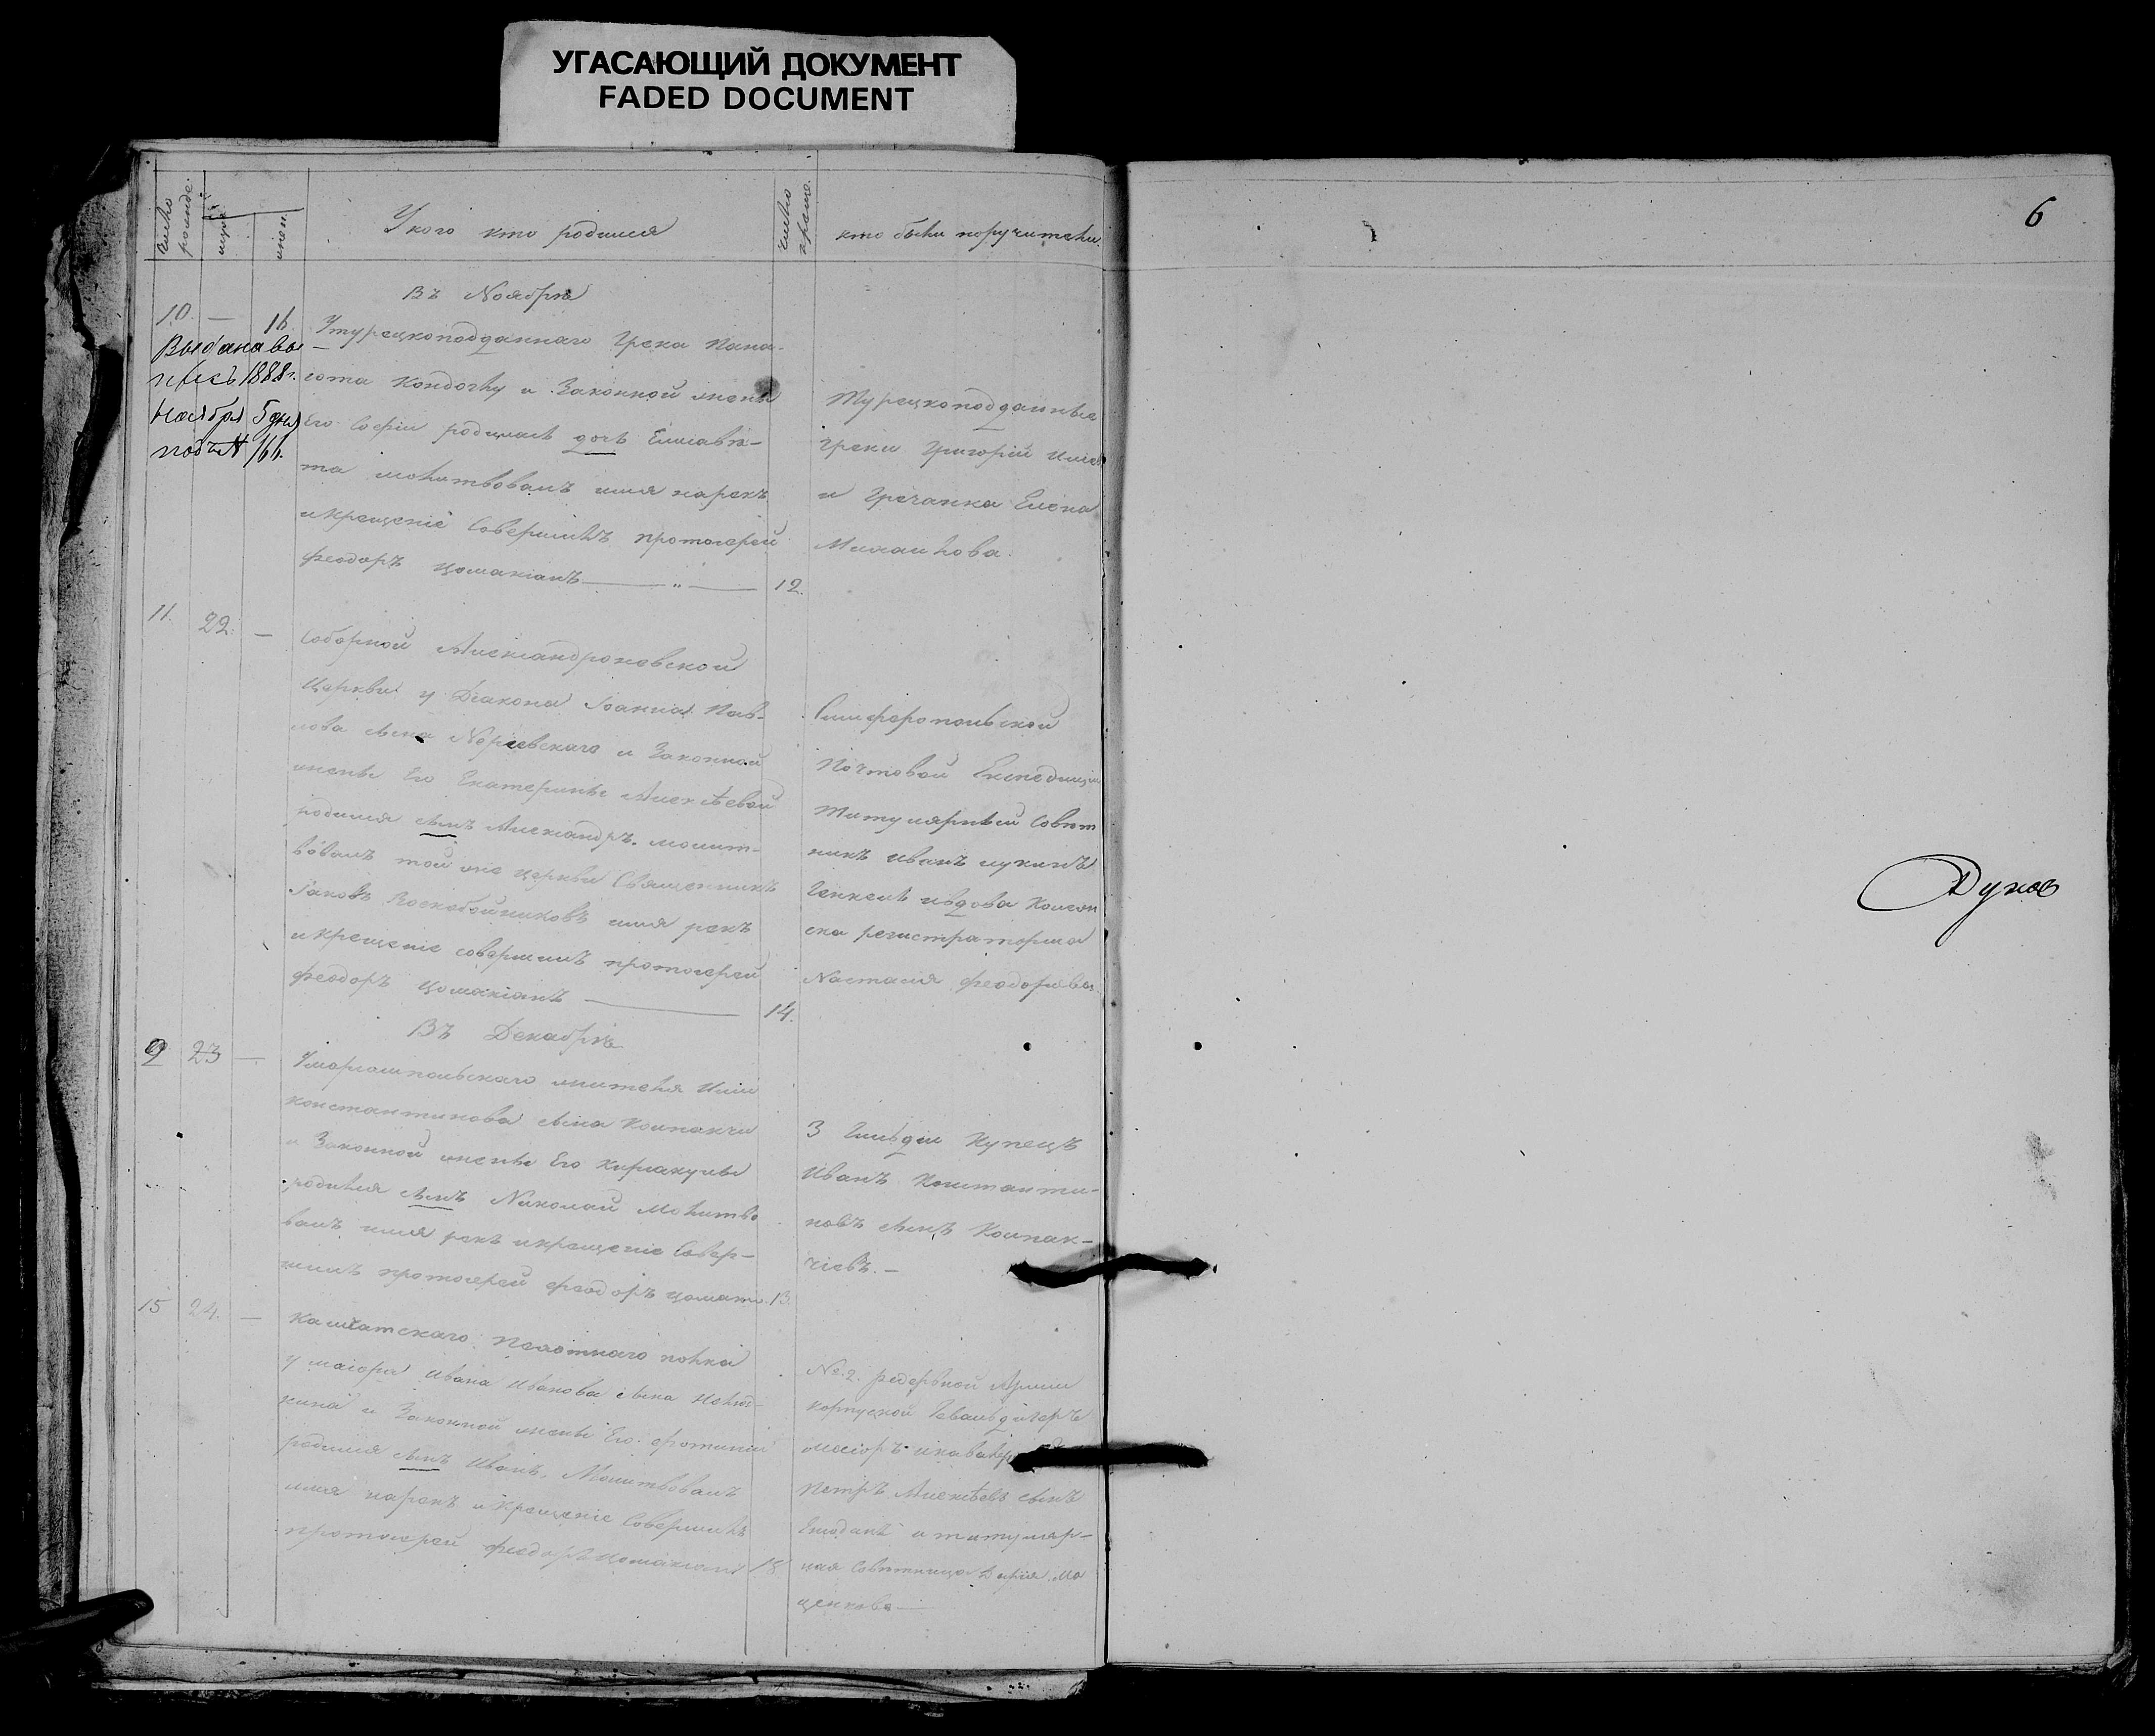 УГАСАЮЩИЙ ДОКУМЕНТ
FADED DOCUMENT
число рожде.
муж.
жен.
У кого кто родился
число креще.
кто были поручители.
Въ Ноябрѣ
10. — 16.
Выдана вы
пись 1888 г.
Ноября 5 дня
подъ № 166.
У турецкоподданнаго Грека Пана-
гота и Законной жены
Его Софіи родилась дочь Елисавѣ-
та молитвовалъ имя нарекъ
и крещеніе Совершилъ протоіерей
Феодоръ Цомакіанъ 12.
Турецкоподданные
Греки Григорій
и Гречанка Елена
Михайлова.
11. 22. —
Соборной Александроневской
Церкви у Діакона Іоанна Пав-
лова сына и Законной
жены Его Екатерины Алексѣевой
родился сынъ Александръ. молит-
вовалъ той же церкви Священникъ
Іаковъ Воскобойниковъ имя рекъ
и крещеніе совершилъ протоіерей
Феодоръ Цомакіанъ 14.
Симферопольской
Почтовой Експедиціи
Титулярный Совѣт
никъ Иванъ Лукинъ
вдова Колеж
ска регистраторша
Настасія Феодорова.
Въ Декабрѣ
9 23 —
жителя Ильи
Константинова сына Колпакчи
и Законной жены Его
родился сынъ Николай Молитво
валъ имя рекъ и крещеніе Совер-
шилъ протоіерей Феодоръ Цомакі. 13
3 Гильдіи Купецъ
Иванъ Константи-
новъ сынъ Колпак-
чіевъ. —
15 24. —
Камчатскаго Пехотнаго полка
у маіора Ивана Иванова сына
и Законной жены Его Фотиніи
родился сынъ Иванъ. Молитвовалъ
имя нарекъ и Крещеніе Совершилъ
протоіерей Феодоръ Цомакіанъ 18
№ 2. резервной Арміи
Корпусной Гевальдигеръ
маіоръ и кавалеръ
Петръ Алексѣевъ сынъ
и титуляр-
ная Совѣтница
6
Духов